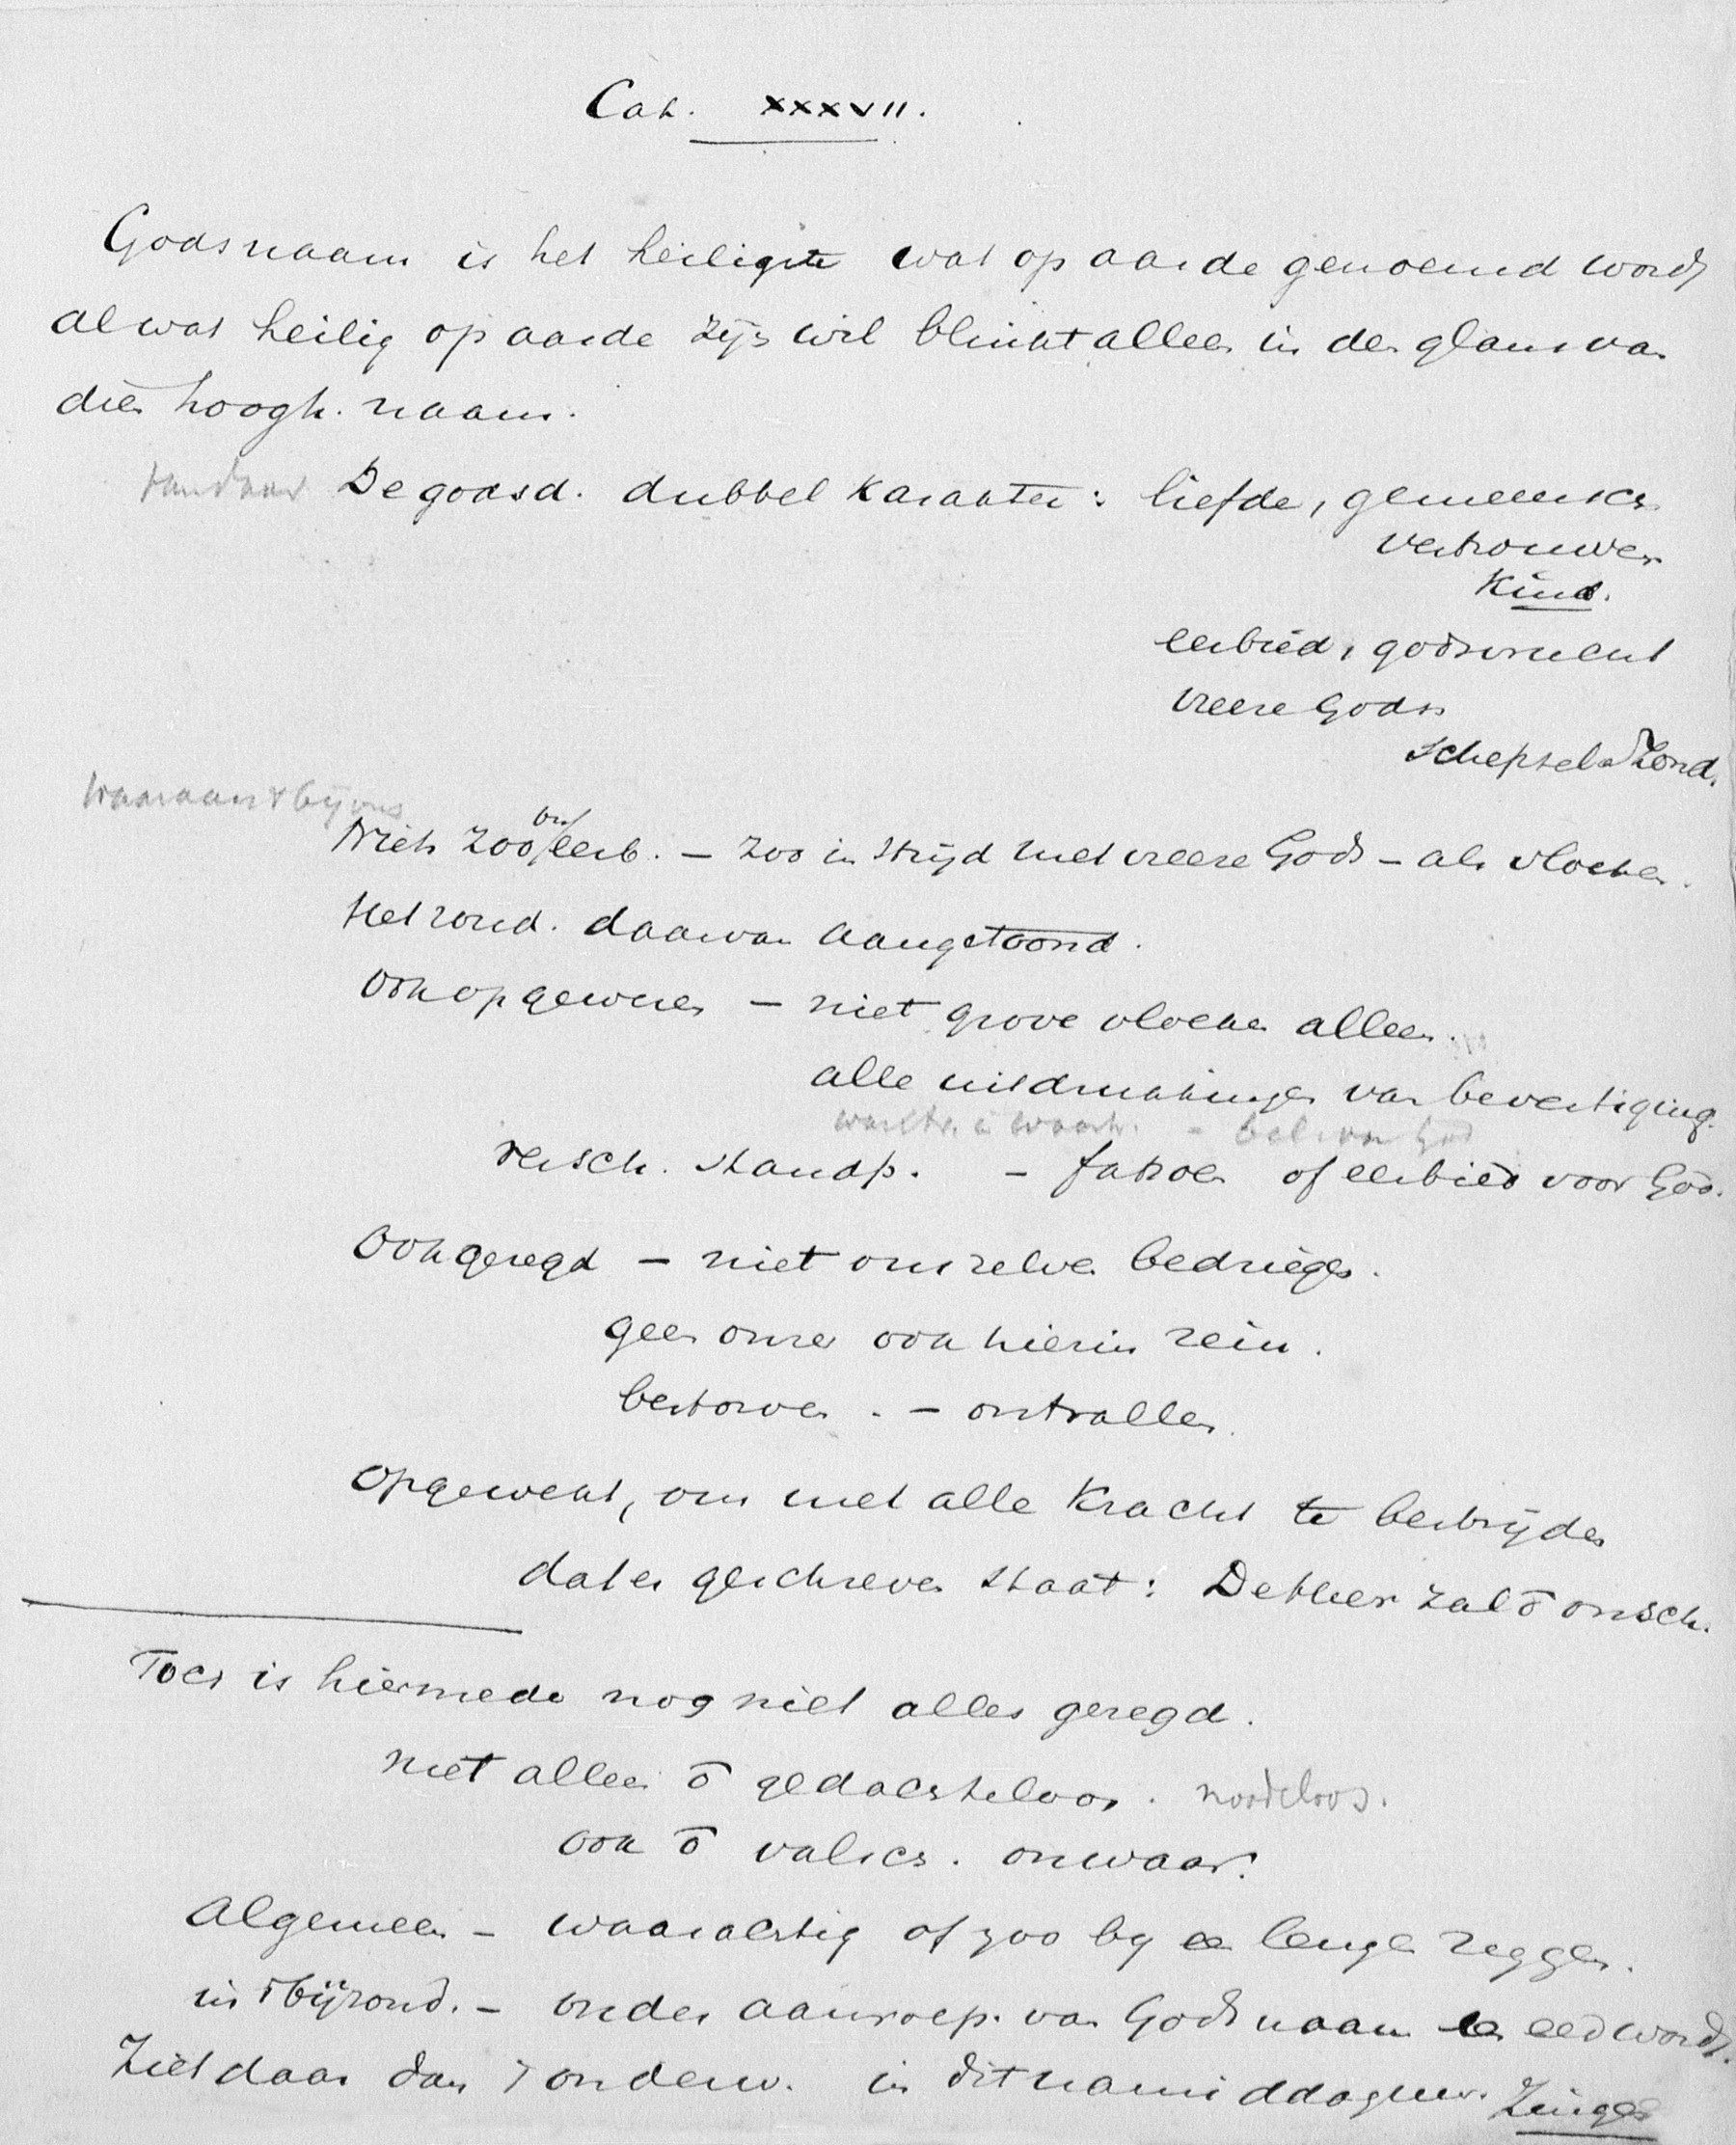 Cat. XXXVII.
Gods naam is het heiligste wat op aarde genoemd wordt
al wat heilig op aarde zijn wil blinkt alleen in den glans van
dien hoogh. naam.
vandaar De godsd. dubbel karakter : liefde, gemeensch.
vertrouwen
Kind.
eerbied, godsvrucht
vreeze Gods
schepsel & zond.
waaraan & bij ons
Niets zoo on/eerb. – zoo in strijd met vreeze Gods – als vloeken.
Het zond. daarvan aangetoond.
Ook opgewezen – niet grove vloeken alleen.
alle uitdrukkingen van bevestiging.
versch. standp. – fatsoen of eerbied voor God.
Ook gezegd – niet ons zelven bedriegen.
geen onzer ook hierin rein.
bestorven . – ontvallen.
Opgewekt, om met alle kracht te bestrijden
dat er geschreven staat : De Heer zal ō onsch.
Toch is hiermede nog niet alles gezegd.
niet alleen ō gedachteloos . noodeloos.
ook ō valsch . onwaar.
Algemeen – waarachtig of zoo bij een leugen zeggen.
in 't bijzond. – onder aanroep. van Gods naam een eed wordt.
Ziet daar dan 't onderw. in dit namiddaguur. Zingen